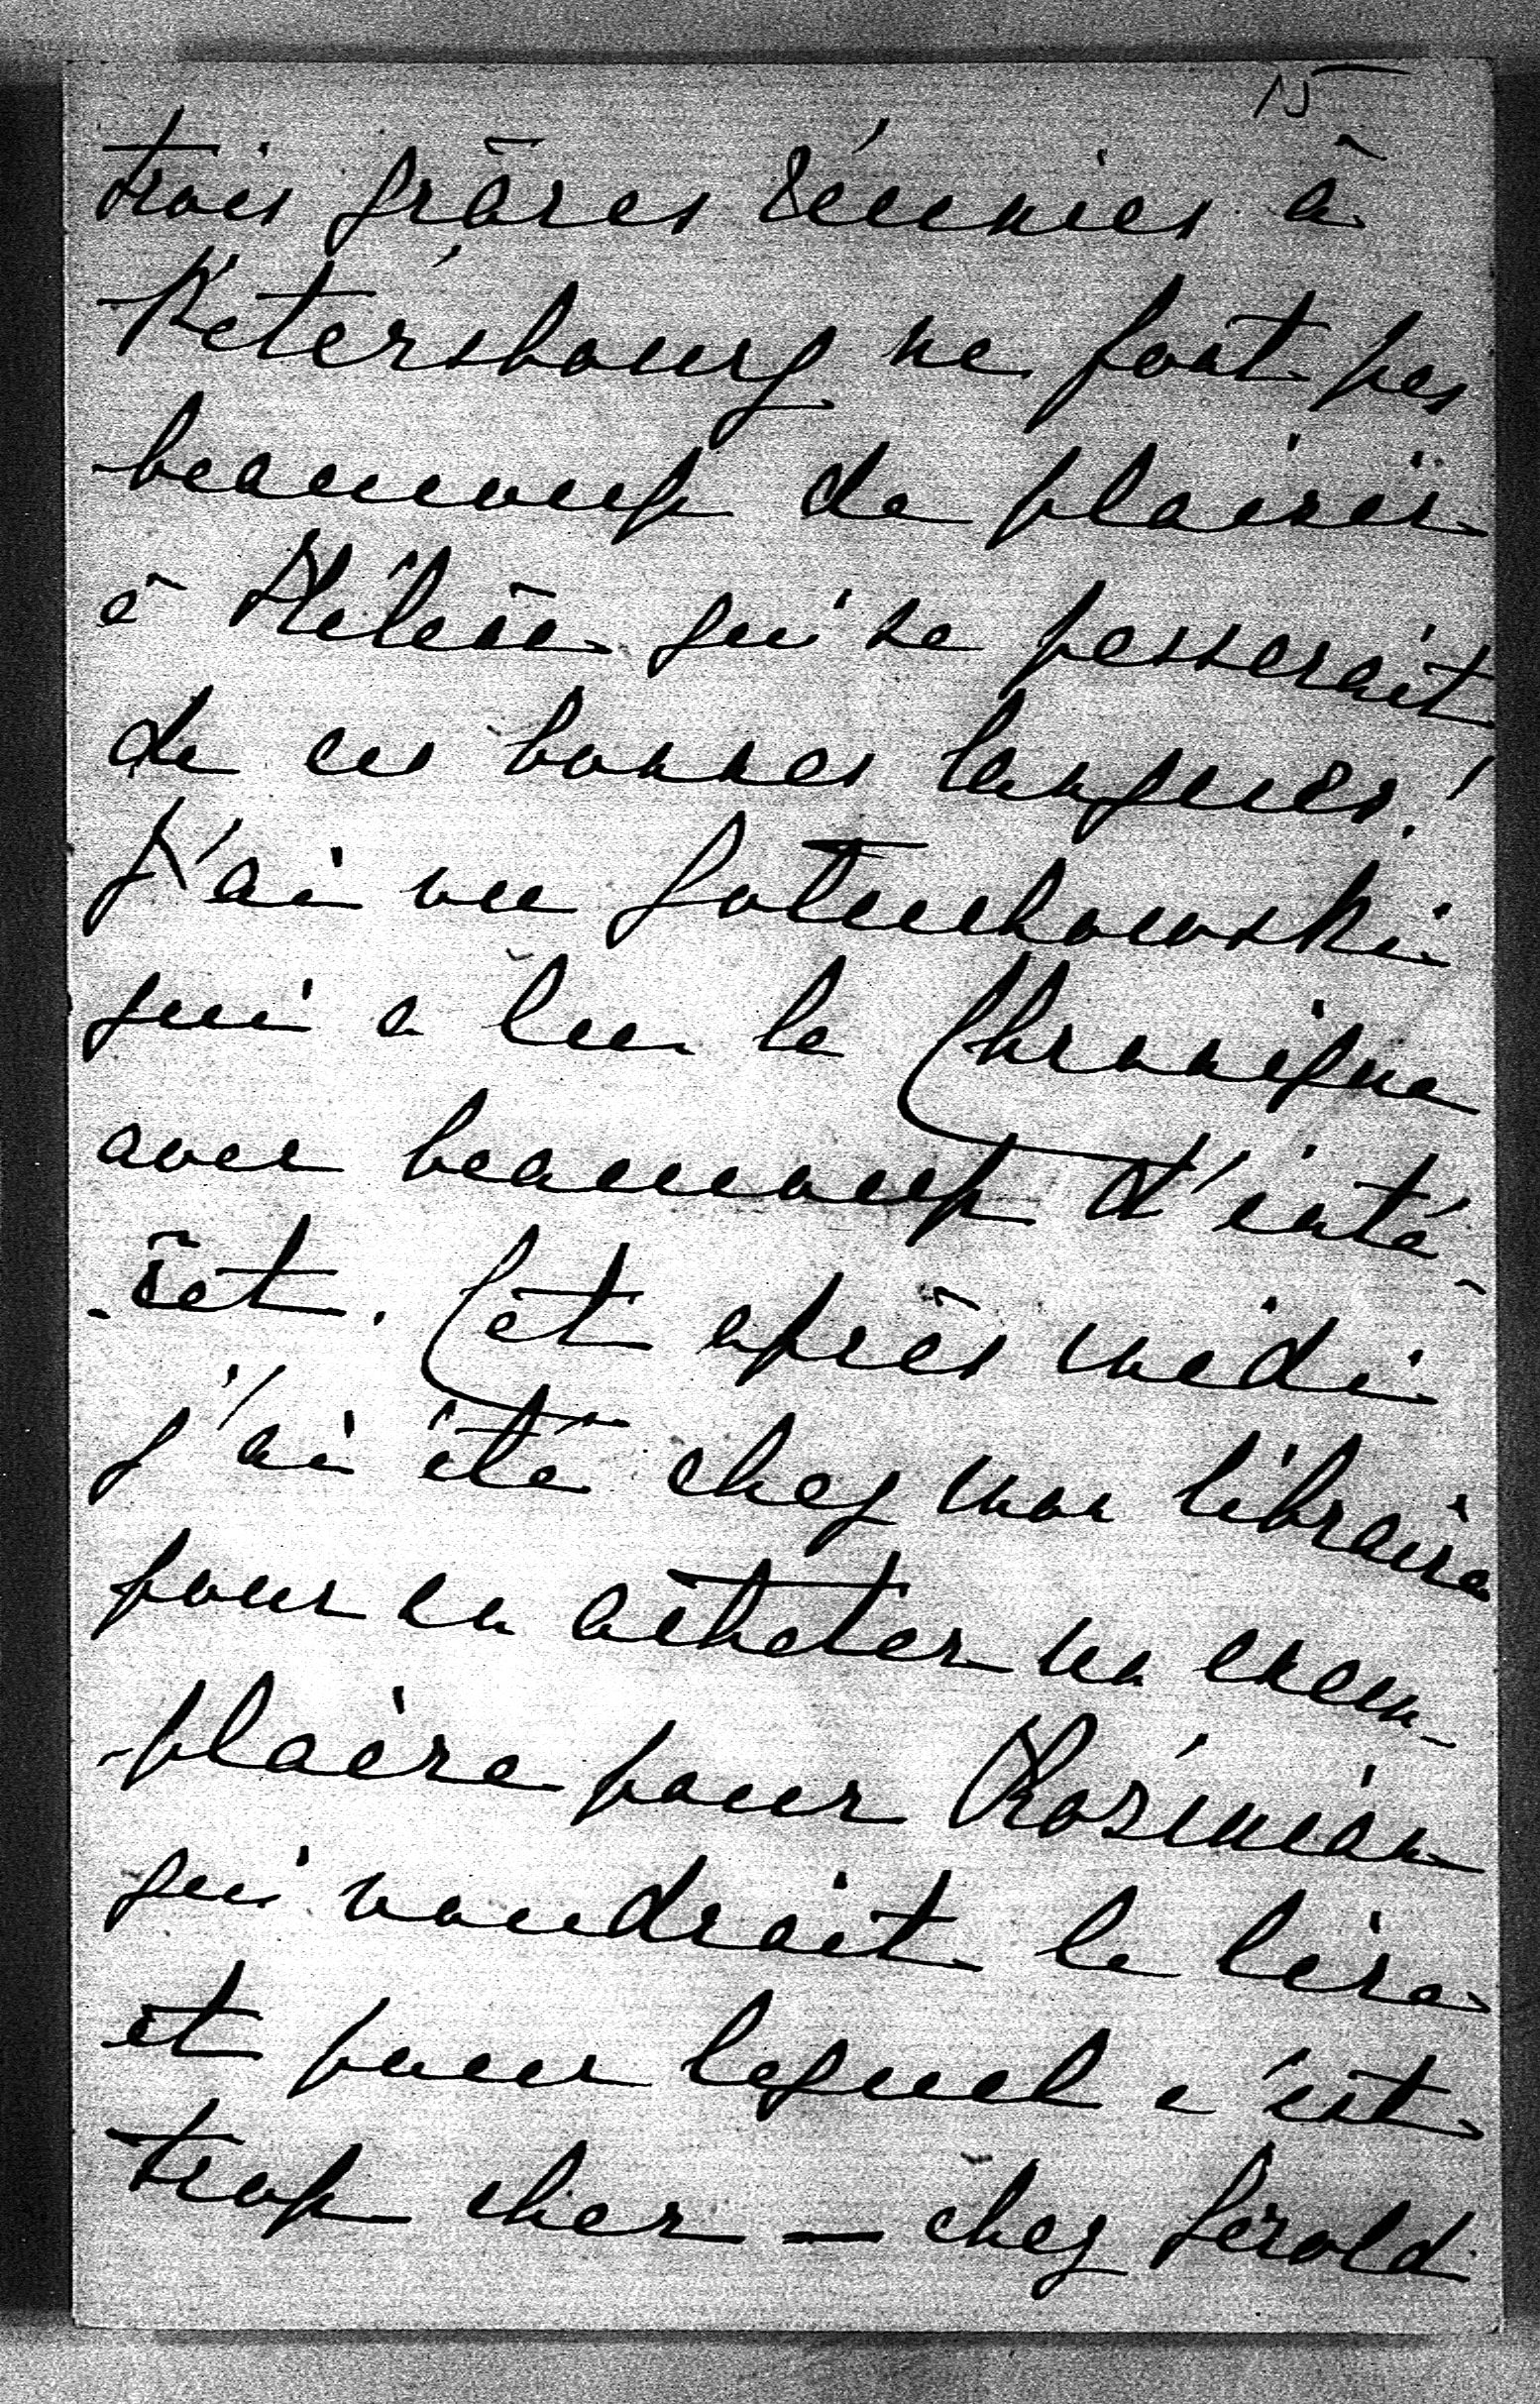 15
trois grâces réunies à
Pétersbourg ne font pas
beaucoup de plaisir
à Hélène qui se passerait
de ces bonnes langues!
J'ai vu Gotuchowski
qui a lu la Chronique
avec beaucoup d'inté-
-rêt. Cet après midi
j'ai été chez mon libraire
pour en acheter un exem-
-plaire pour Kosinian
qui voudrait le lire
et pour lequel c'est
trop cher — chez Gerold